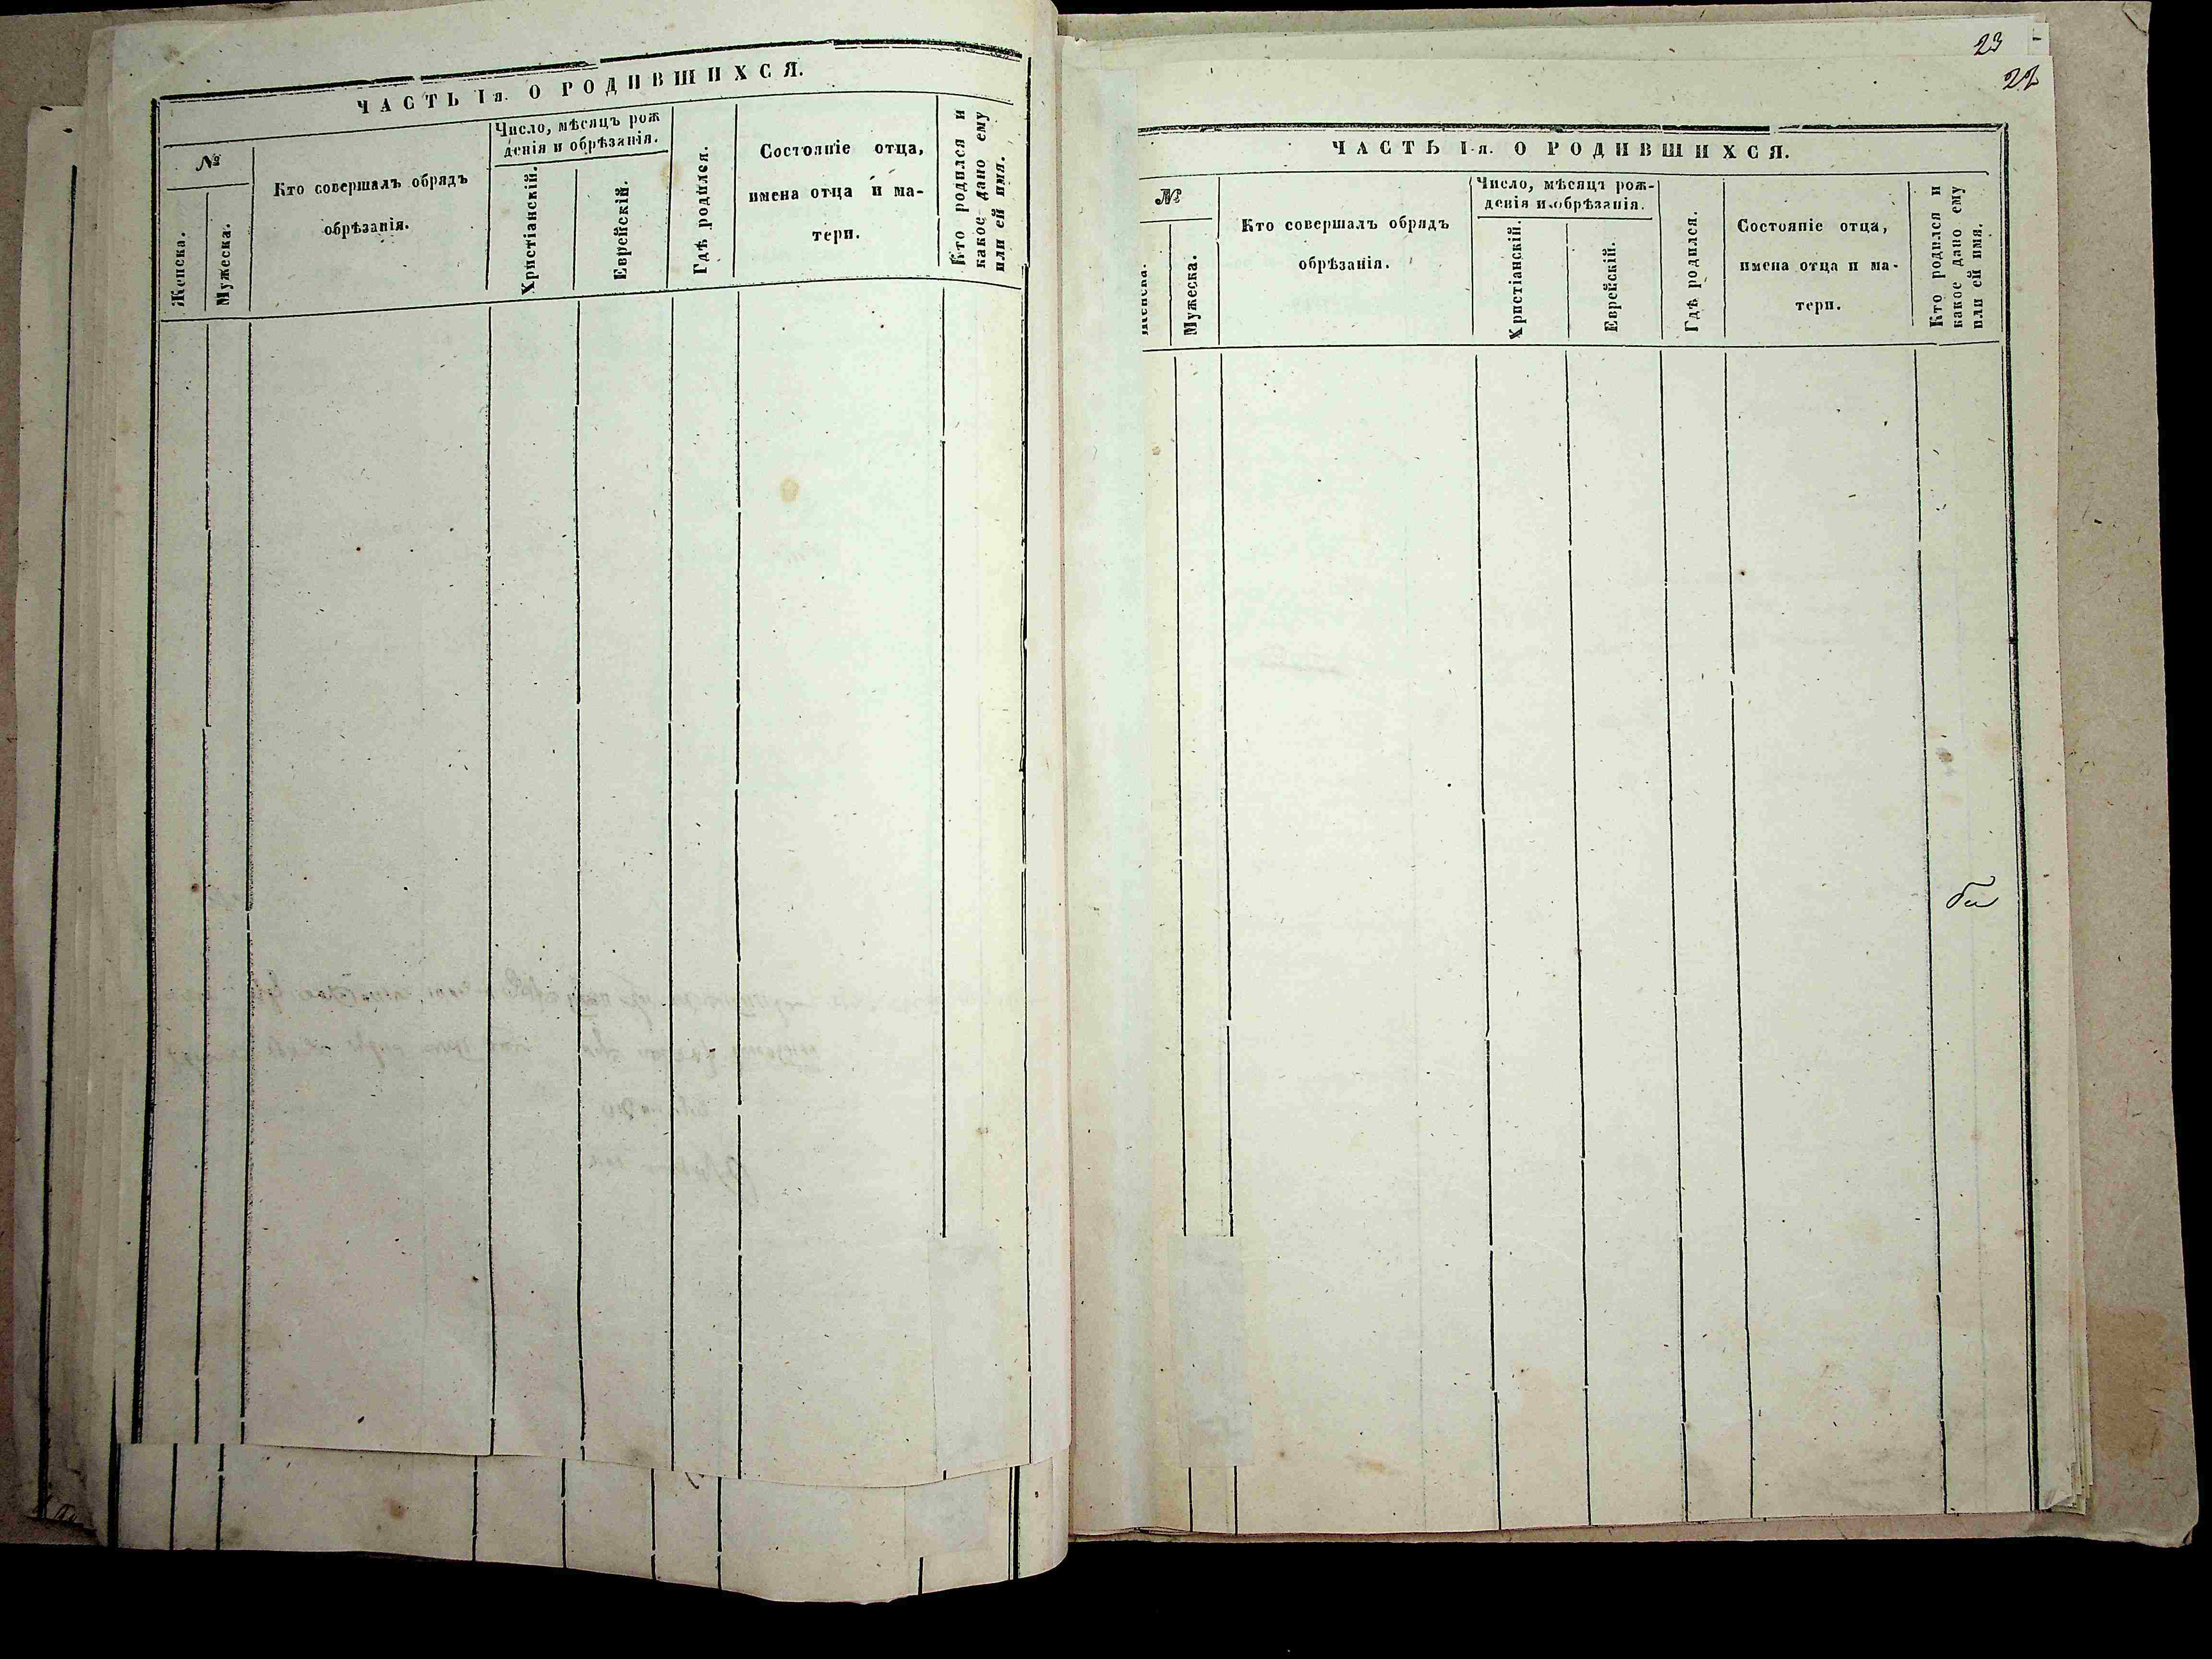 ЧАСТЬ I я. О РОДИВШИХСЯ.
№
Женска.
Мужеска.
Кто совершалъ обрядъ
обрѣзанія.
Число, мѣсяцъ рож
денія и обрѣзанія.
Христіанскій.
Еврейскій.
Гдѣ родился.
Состояніе отца,
имена отца и ма-
тери.
Кто родился и
какое дано ему
или ей имя.
23
22
ЧАСТЬ I-я. О РОДИВШИХСЯ.
№
Женска.
Мужеска.
Кто совершалъ обрядъ
обрѣзанія.
Число, мѣсяцъ рож-
денія и обрѣзанія.
Христіанскій.
Еврейскій.
Гдѣ родился.
Состояніе отца,
имена отца и ма-
тери.
Кто родился и
какое дано ему
или ей имя.